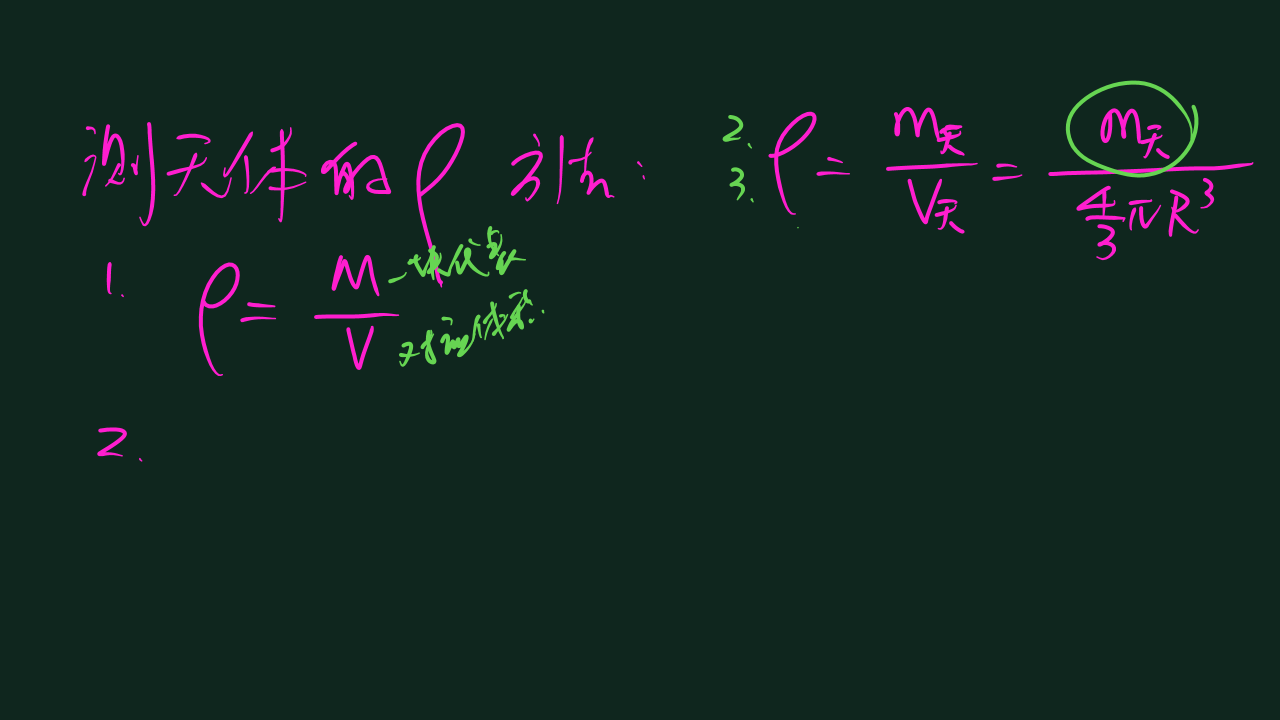 测天体的ρ方法:
1. ρ = M/V 一块质量
对应体积.
2.
2. 3. ρ = m天/V天 = m天/(4/3 πR³)